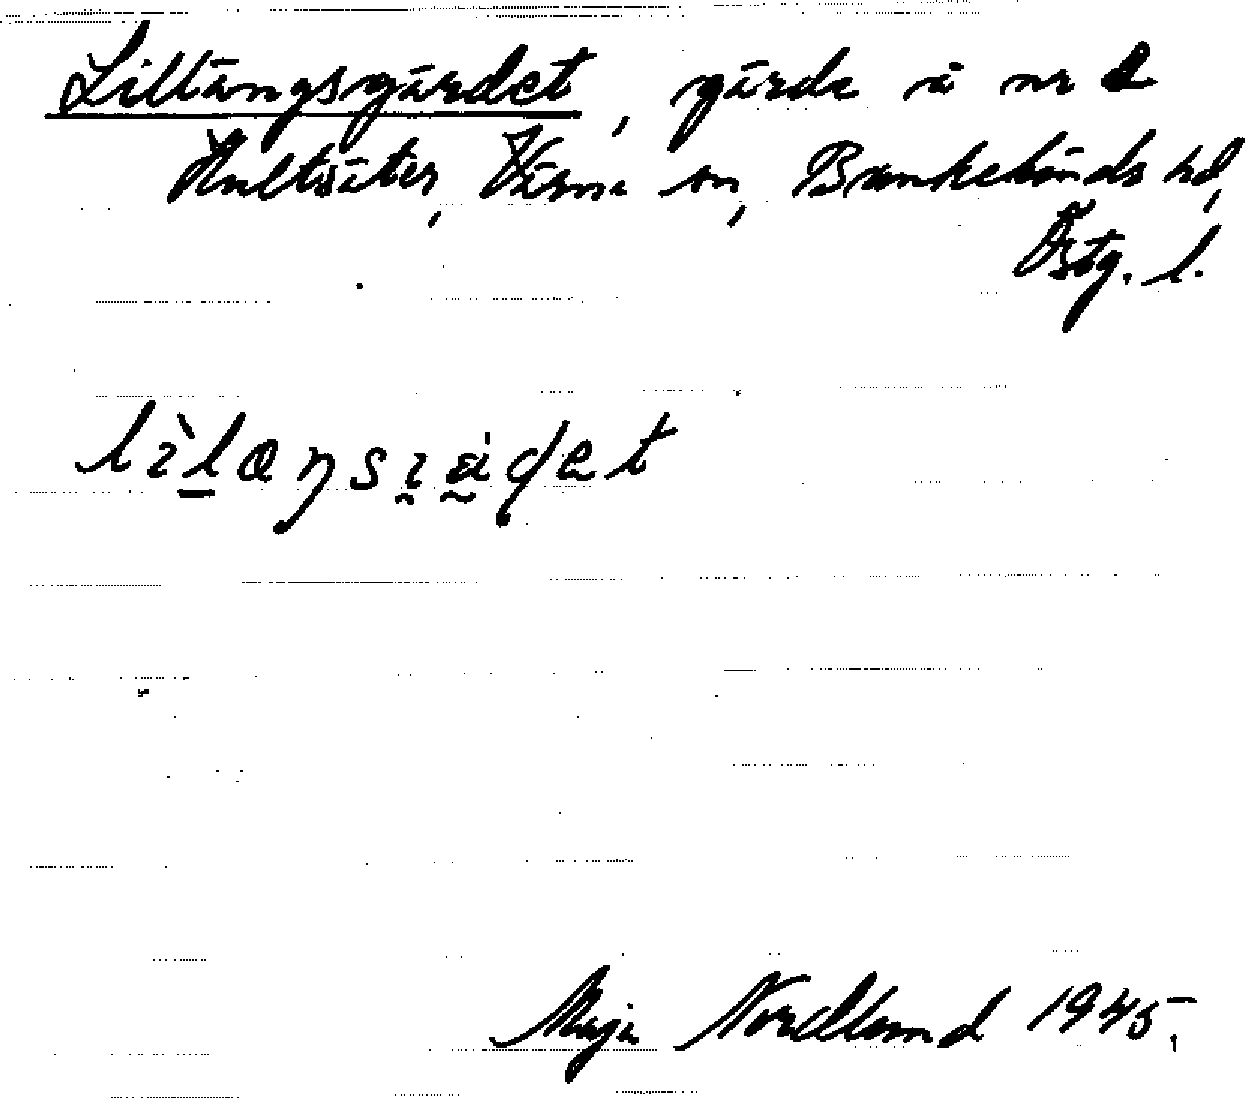 Lillängsgärdet, gärde å nr 2
Hultsäter, Värna sn, Bankekinds hd,
Östg. l.
Maja Nordlund 1945.